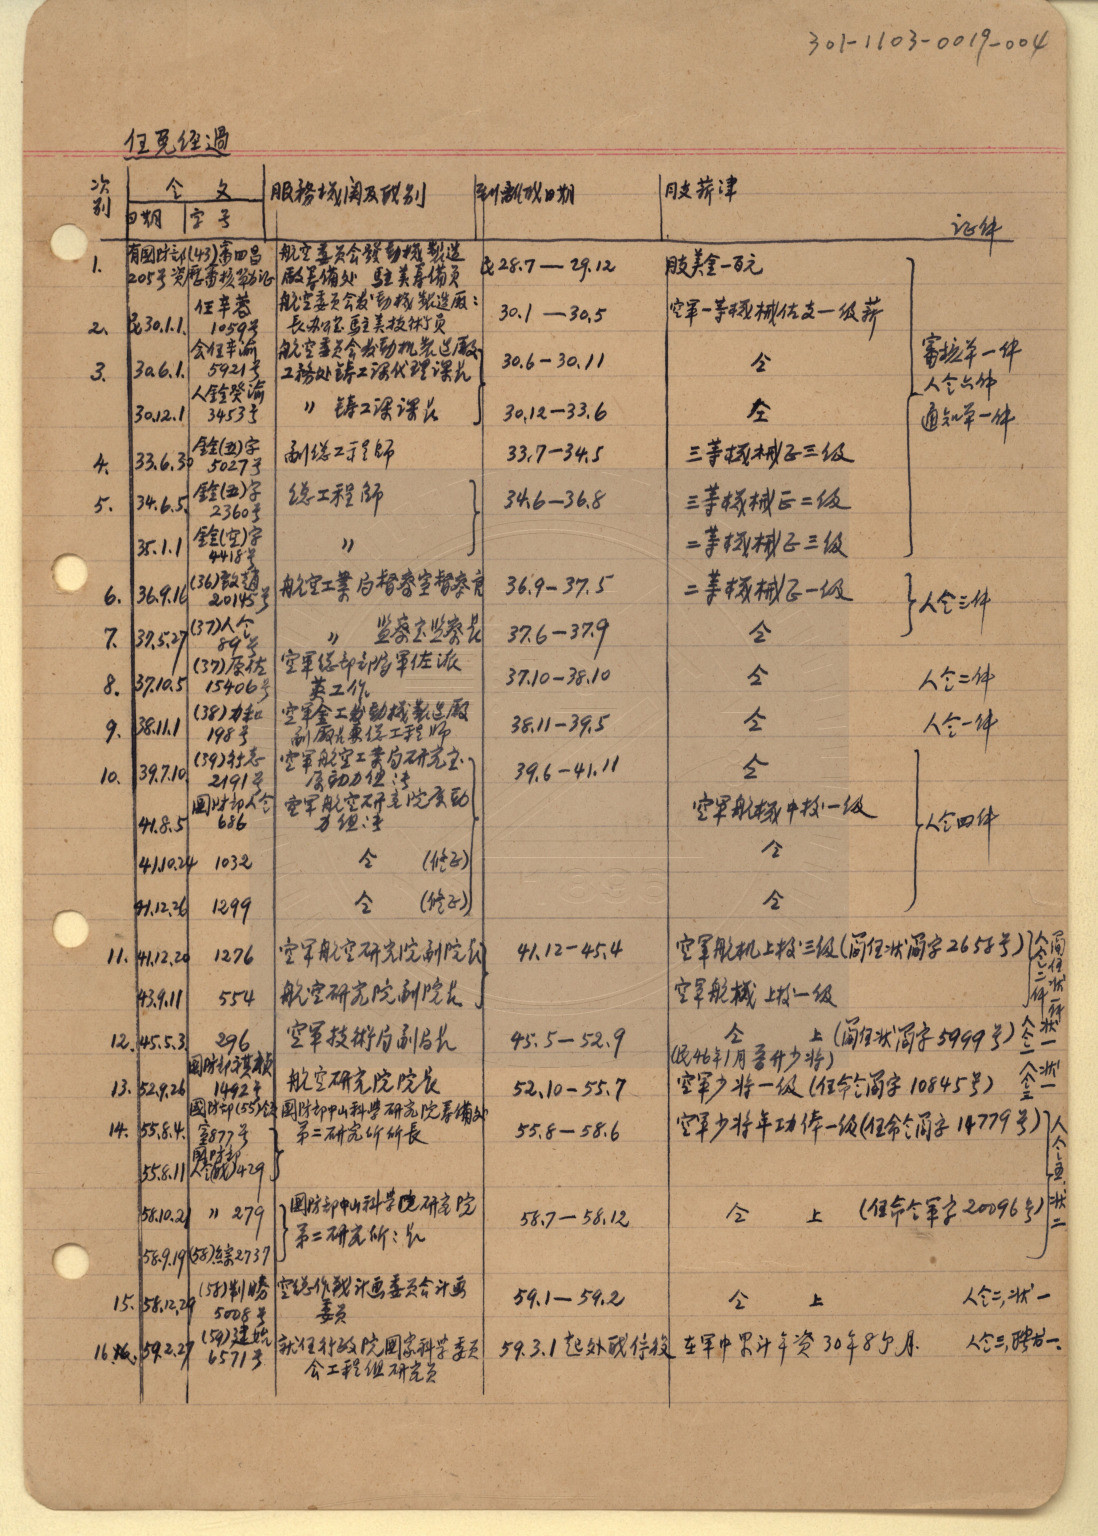 301-1103-0019-004
任免経過
次別 令文 服務機関及职别 到離职日期 月支薪津
日期 字号 证件
1. 有國防部(43)第四昌 航空委員会發动機製造
205号資歷審核 証 廠筹備处 駐美筹備員 民28.7—29.12 月支美金一百元
2. 民30.1.1. 任辛蓉 航空委员会发动機製造廠:
1059号 長办公室駐美技術員 30.1—30.5 空軍一等機械佐支一级薪
3. 30.6.1. 会任辛渝 航空委员会发动机製造廠
5921号 工務处鋳工课代理课長 30.6-30.11 仝
審核单一件
人令六件
通知单一件
30.12.1 人銓癸渝
3453号 〃 鋳工课课長 30.12-33.6 仝
4. 33.6.30 銓(五)字
5027号 副総工程師 33.7-34.5 三等機械正三级
5. 34.6.5. 銓(五)字
2360号 総工程師 34.6-36.8 三等機械正二级
35.1.1 銓(空)字
4418号 〃 二等機械正三级
6. 36.9.16 (36)
20145号 航空工業局督察室督察官 36.9-37.5 二等機械正一级 人令三件
7. 37.5.27 (37)人令
89号 〃 監察室監察長 37.6-37.9 仝
8. 37.10.5 (37)
15406号 空軍総部 軍佐派
英工作 37.10-38.10 仝 人令二件
9. 38.11.1 (38)力和
198号 空軍 发動機製造廠
副廠長兼総工程師 38.11-39.5 仝 人令一件
10. 39.7.10 (39)行志
2191号 空軍航空工業局研究室
原动力组:長 39.6-41.11 仝
41.8.5 國防部人令
686 空軍航空研究院原動
力组:長 空軍航機中校一级 人令四件
41.10.24 1032 仝 (修正) 仝
41.12.26 1299 仝 (修正) 仝
11. 41.12.20 1276 空軍航空研究院副院長 41.12-45.4 空軍航机上校三级(简任状简字2658号) 简任状一件
人令二件
43.9.11 554 航空研究院副院長 空軍航機上校一级
12. 45.5.3 296 空軍技術局副局長 45.5-52.9 仝 上 (简任状简字5999号) 状一
人令一
(民46年1月晋升少将)
13. 52.9.26 1492号 航空研究院院長 52.10-55.7 空軍少将一级(任命令简字10845号) 状一
14. 55.8.4. 國防部(55)
877号 國防部中山科学研究院筹備处
第二研究所所長 55.8-58.6 空軍少将年功俸一级(任命令简字14779号) 人令五,状二
55.8.11 國防部
人令 429
58.10.21 〃 279 國防部中山科学院研究院
第二研究所:長 58.7-58.12 仝 上 (任命令軍字20096号)
58.9.19 (58)綜2737
15. 58.12.29 (58)制勝
5008号 空総作戦计画委员会计画
委员 59.1-59.2 仝 上 人令二,状一
16. 59.2.27 (59)建
6571号 就任行政院国家科学委员
会工程组研究员 59.3.1起外职停役 在軍中累计年资30年8个月. 人令三,聘书一.